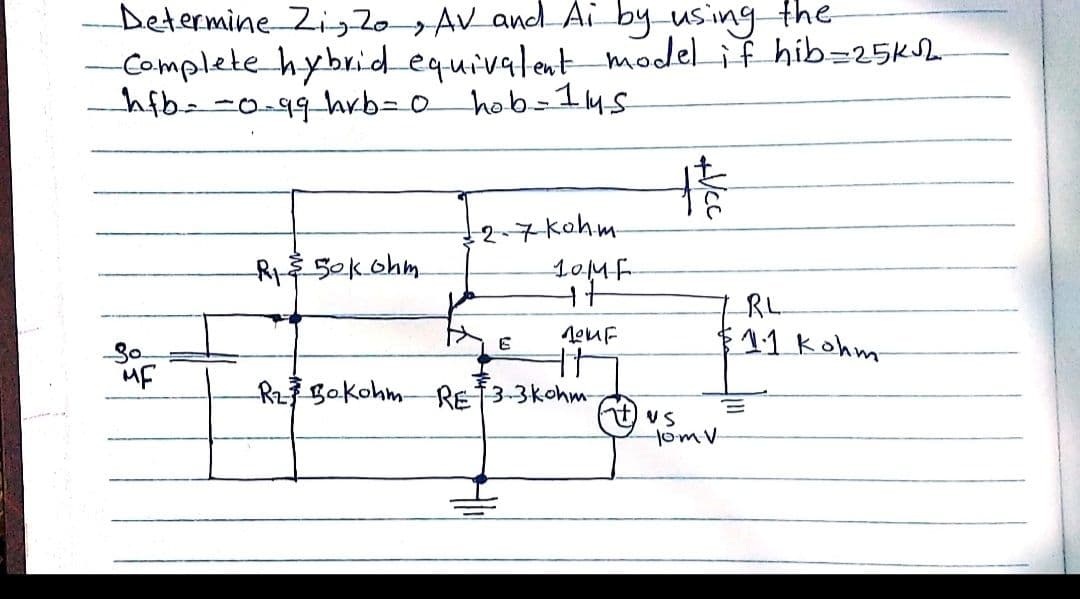 Determine Zi, Zo, AV and Ai by using the
Complete hybrid equivalent model if hib=25kΩ
hfb= -0.99 hrb= 0 hob=1μs
+Vcc
2.7 kohm
R1 50k ohm
10μF
RL
1.1 kohm
E
10μF
30
μF
R2 30kohm RE 3.3kohm
+ vs
10mV